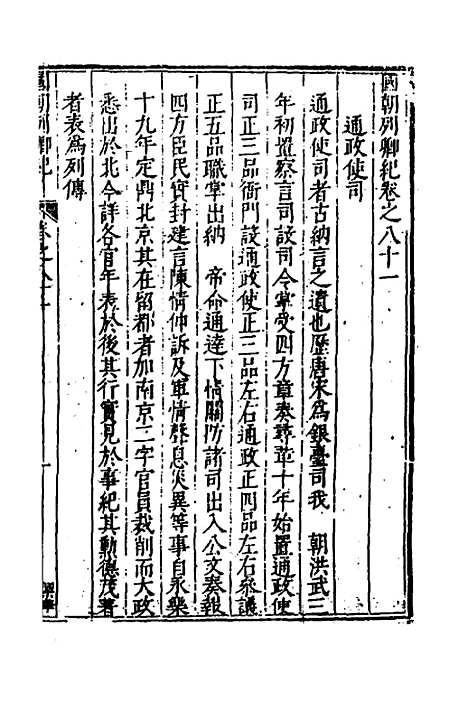 國朝列卿紀卷之八十一
通政使司
通政使司者古納言之遺也歷唐宋爲銀臺司我　朝洪武三
年初置察言司設司令掌受四方章奏尋革十年始置通政使
司正三品衙門設通政使正三品左右通政正四品左右參議
正五品職掌出納　帝命通達下情關防諸司出入公文奏報
四方臣民實封建言陳情伸訴及軍情聲息災異等事自永樂
十九年定鼎北京其在留都者加南京二字官員裁削而大政
悉出於北今詳各官年表於後其行實見於事紀其勳德茂著
者表爲列傳
國朝列卿紀　卷之八十一　一